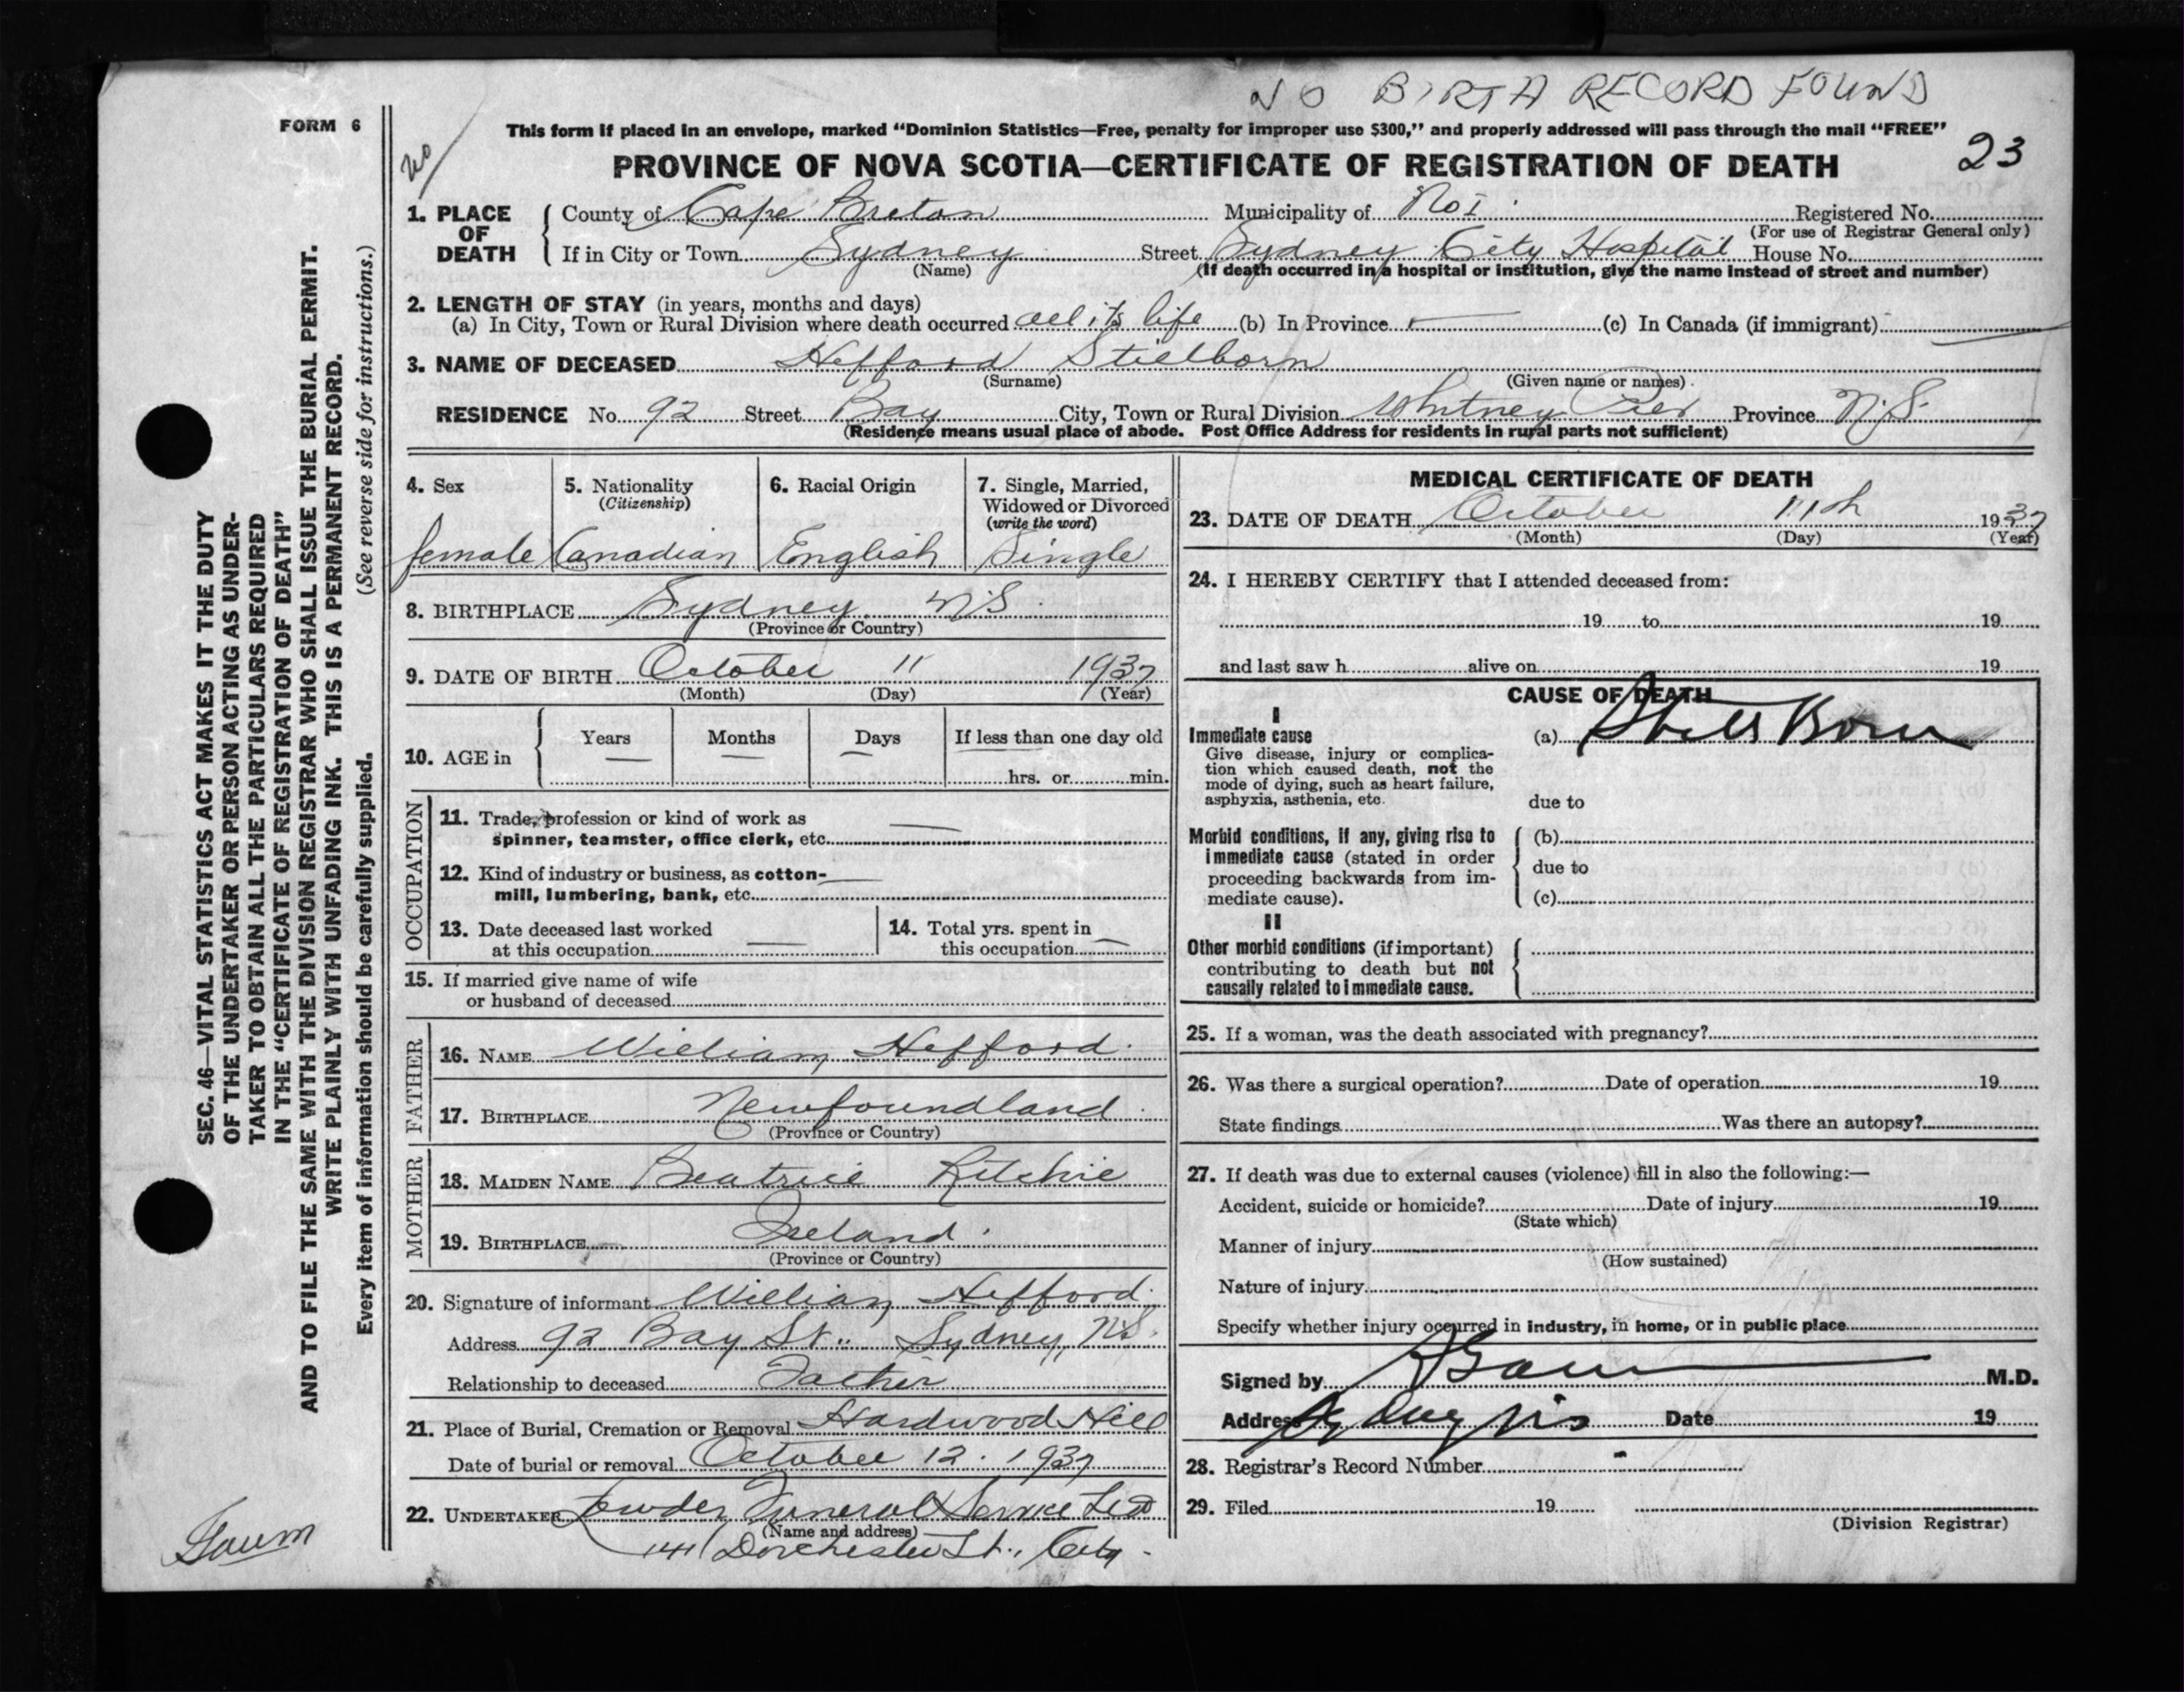 NO BIRTH RECORD FOUND
FORM 6
This form if placed in an envelope, marked “Dominion Statistics—Free, penalty for improper use $300,” and properly addressed will pass through the mail “FREE”
23
PROVINCE OF NOVA SCOTIA—CERTIFICATE OF REGISTRATION OF DEATH
1. PLACE OF DEATH
County of Cape Breton Municipality of No 1. Registered No.
(For use of Registrar General only)
If in City or Town Sydney Street Sydney City Hospital House No.
(Name) (If death occurred in a hospital or institution, give the name instead of street and number)
2. LENGTH OF STAY (in years, months and days)
(a) In City, Town or Rural Division where death occurred all its life (b) In Province — (c) In Canada (if immigrant) —
3. NAME OF DECEASED Hefford Stillborn
(Surname) (Given name or names)
RESIDENCE No. 92 Street Bay City, Town or Rural Division Whitney Pier Province N.S.
(Residence means usual place of abode. Post Office Address for residents in rural parts not sufficient)
4. Sex
female
5. Nationality
(Citizenship)
Canadian
6. Racial Origin
English
7. Single, Married,
Widowed or Divorced
(write the word)
Single
8. BIRTHPLACE Sydney N.S.
(Province or Country)
9. DATE OF BIRTH October 11 1937
(Month) (Day) (Year)
10. AGE in
Years —
Months —
Days —
If less than one day old
hrs. or min.
OCCUPATION
11. Trade, profession or kind of work as —
spinner, teamster, office clerk, etc.
12. Kind of industry or business, as cotton- —
mill, lumbering, bank, etc.
13. Date deceased last worked
at this occupation —
14. Total yrs. spent in
this occupation —
15. If married give name of wife
or husband of deceased
FATHER
16. NAME William Hefford.
17. BIRTHPLACE Newfoundland.
(Province or Country)
MOTHER
18. MAIDEN NAME Beatrice Ritchie
19. BIRTHPLACE Ireland.
(Province or Country)
20. Signature of informant William Hefford.
Address 92 Bay St., Sydney, N.S.
Relationship to deceased Father
21. Place of Burial, Cremation or Removal Hardwood Hill
Date of burial or removal October 12. 1937
22. UNDERTAKER Funeral Service Ltd
(Name and address)
141 Dorchester St., City.
MEDICAL CERTIFICATE OF DEATH
23. DATE OF DEATH October 11th 1937
(Month) (Day) (Year)
24. I HEREBY CERTIFY that I attended deceased from:
19 to 19
and last saw h alive on 19
CAUSE OF DEATH
I
Immediate cause (a) Still Born
Give disease, injury or complica-
tion which caused death, not the
mode of dying, such as heart failure,
asphyxia, asthenia, etc.
due to
Morbid conditions, if any, giving rise to
immediate cause (stated in order
proceeding backwards from im-
mediate cause).
(b)
due to
(c)
II
Other morbid conditions (if important)
contributing to death but not
causally related to immediate cause.
25. If a woman, was the death associated with pregnancy?
26. Was there a surgical operation? Date of operation 19
State findings Was there an autopsy?
27. If death was due to external causes (violence) fill in also the following:—
Accident, suicide or homicide? Date of injury 19
(State which)
Manner of injury
(How sustained)
Nature of injury
Specify whether injury occurred in industry, in home, or in public place
Signed by M.D.
Address Date 19
28. Registrar's Record Number
29. Filed 19
(Division Registrar)
SEC. 46—VITAL STATISTICS ACT MAKES IT THE DUTY
OF THE UNDERTAKER OR PERSON ACTING AS UNDER-
TAKER TO OBTAIN ALL THE PARTICULARS REQUIRED
IN THE “CERTIFICATE OF REGISTRATION OF DEATH”
AND TO FILE THE SAME WITH THE DIVISION REGISTRAR WHO SHALL ISSUE THE BURIAL PERMIT.
WRITE PLAINLY WITH UNFADING INK. THIS IS A PERMANENT RECORD.
Every item of information should be carefully supplied. (See reverse side for instructions.)